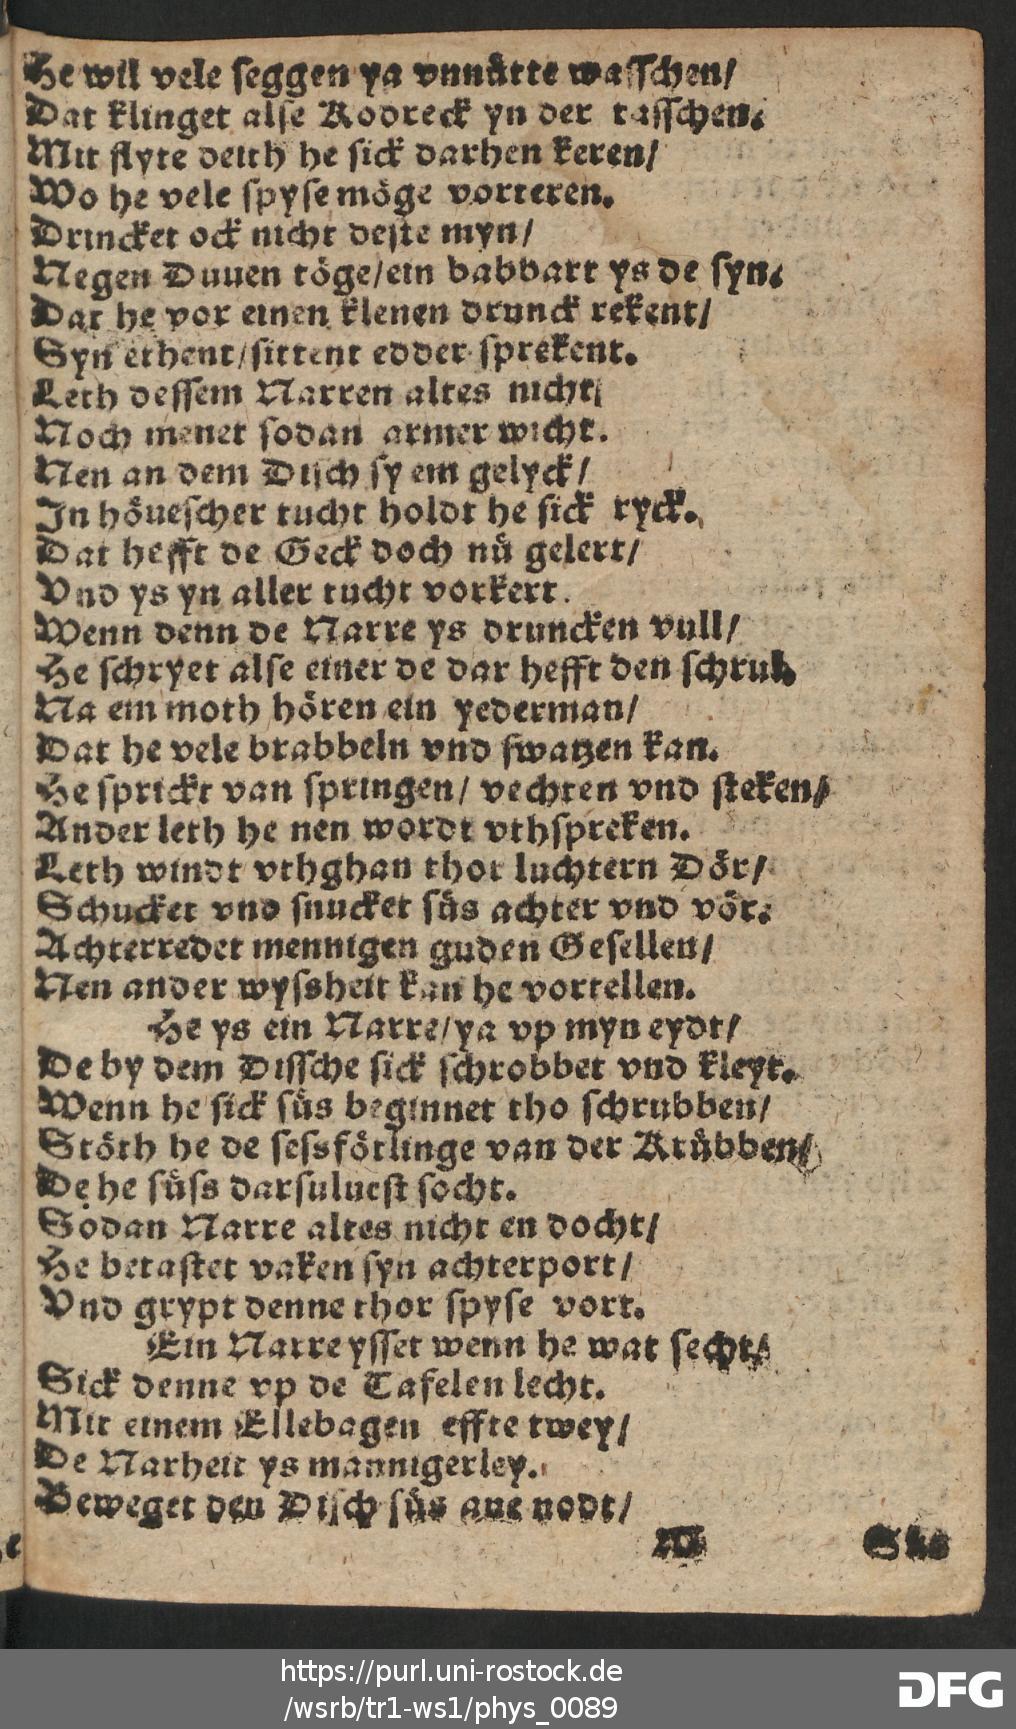 He wil vele seggen ya vnnütte wasschen/
Dat klinget alse Kodreck yn der tasschen.
Mit flyte deith he sick darhen keren/
Wo he vele spyse möge vorteren.
Drincket ock nicht deste myn/
Negen Duuen töge/ein babbart ys de syn.
Dat he vor einen klenen drunck rekent/
Syn ethent/sittent edder sprekent.
Leth dessem Narren altes nicht/
Noch menet sodan armer wicht.
Nen an dem Disch sy em gelyck/
In höuescher tucht holdt he sick ryck.
Dat hefft de Geck doch nü gelert/
Vnd ys yn aller tucht vorkert.
Wenn denn de Narre ys druncken vull/
He schryet alse einer de dar hefft den schrul.
Na em moth hören ein yederman/
Dat he vele brabbeln vnd swatzen kan.
He sprickt van springen/ vechten vnd steken/
Ander leth he nen wordt vthspreken.
Leth windt vthghan thor luchtern Dör/
Schucket vnd snucket süs achter vnd vör.
Achterredet mennigen guden Gesellen/
Nen ander wyssheit kan he vortellen.
He ys ein Narre/ya vp myn eydt/
De by dem Dissche sick schrobbet vnd kleyt.
Wenn he sick süs beginnet tho schrubben/
Stöth he de sessförlinge van der Krübben/
De he süss darsuluest socht.
Sodan Narre altes nicht en docht/
He betastet vaken syn achterport/
Vnd grypt denne thor spyse vort.
Ein Narre ysset wenn he wat secht/
Sick denne vp de Tafelen lecht.
Mit einem Ellebagen effte twey/
De Narheit ys mannigerley.
Beweget den Disch süs ane nodt/
M Sus
https://purl.uni-rostock.de
/wsrb/tr1-ws1/phys_0089
DFG